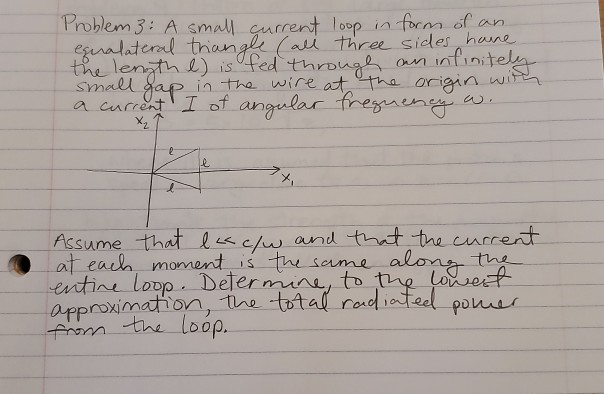 Problem 3: A small current loop in form of an
equalateral triangle (all three sides have
the length l) is fed through an infinitely
small gap in the wire at the origin with
a current I of angular frequency ω.
x₂
l
l
l
x₁
Assume that l << c/ω and that the current
at each moment is the same along the
entire loop. Determine, to the lowest
approximation, the total radiated power
from the loop.